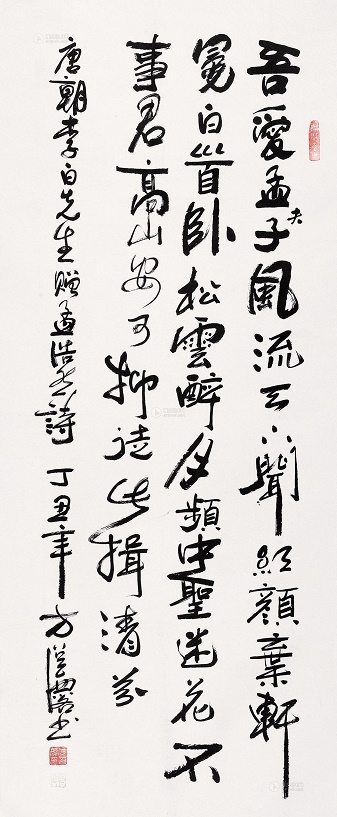 吾愛孟夫子風流天下聞紅顏棄軒
冕白首臥松雲醉月頻中聖迷花不
事君高山安可抑徒此揖清芬
唐朝李白先生贈孟浩然詩 丁丑年 方書